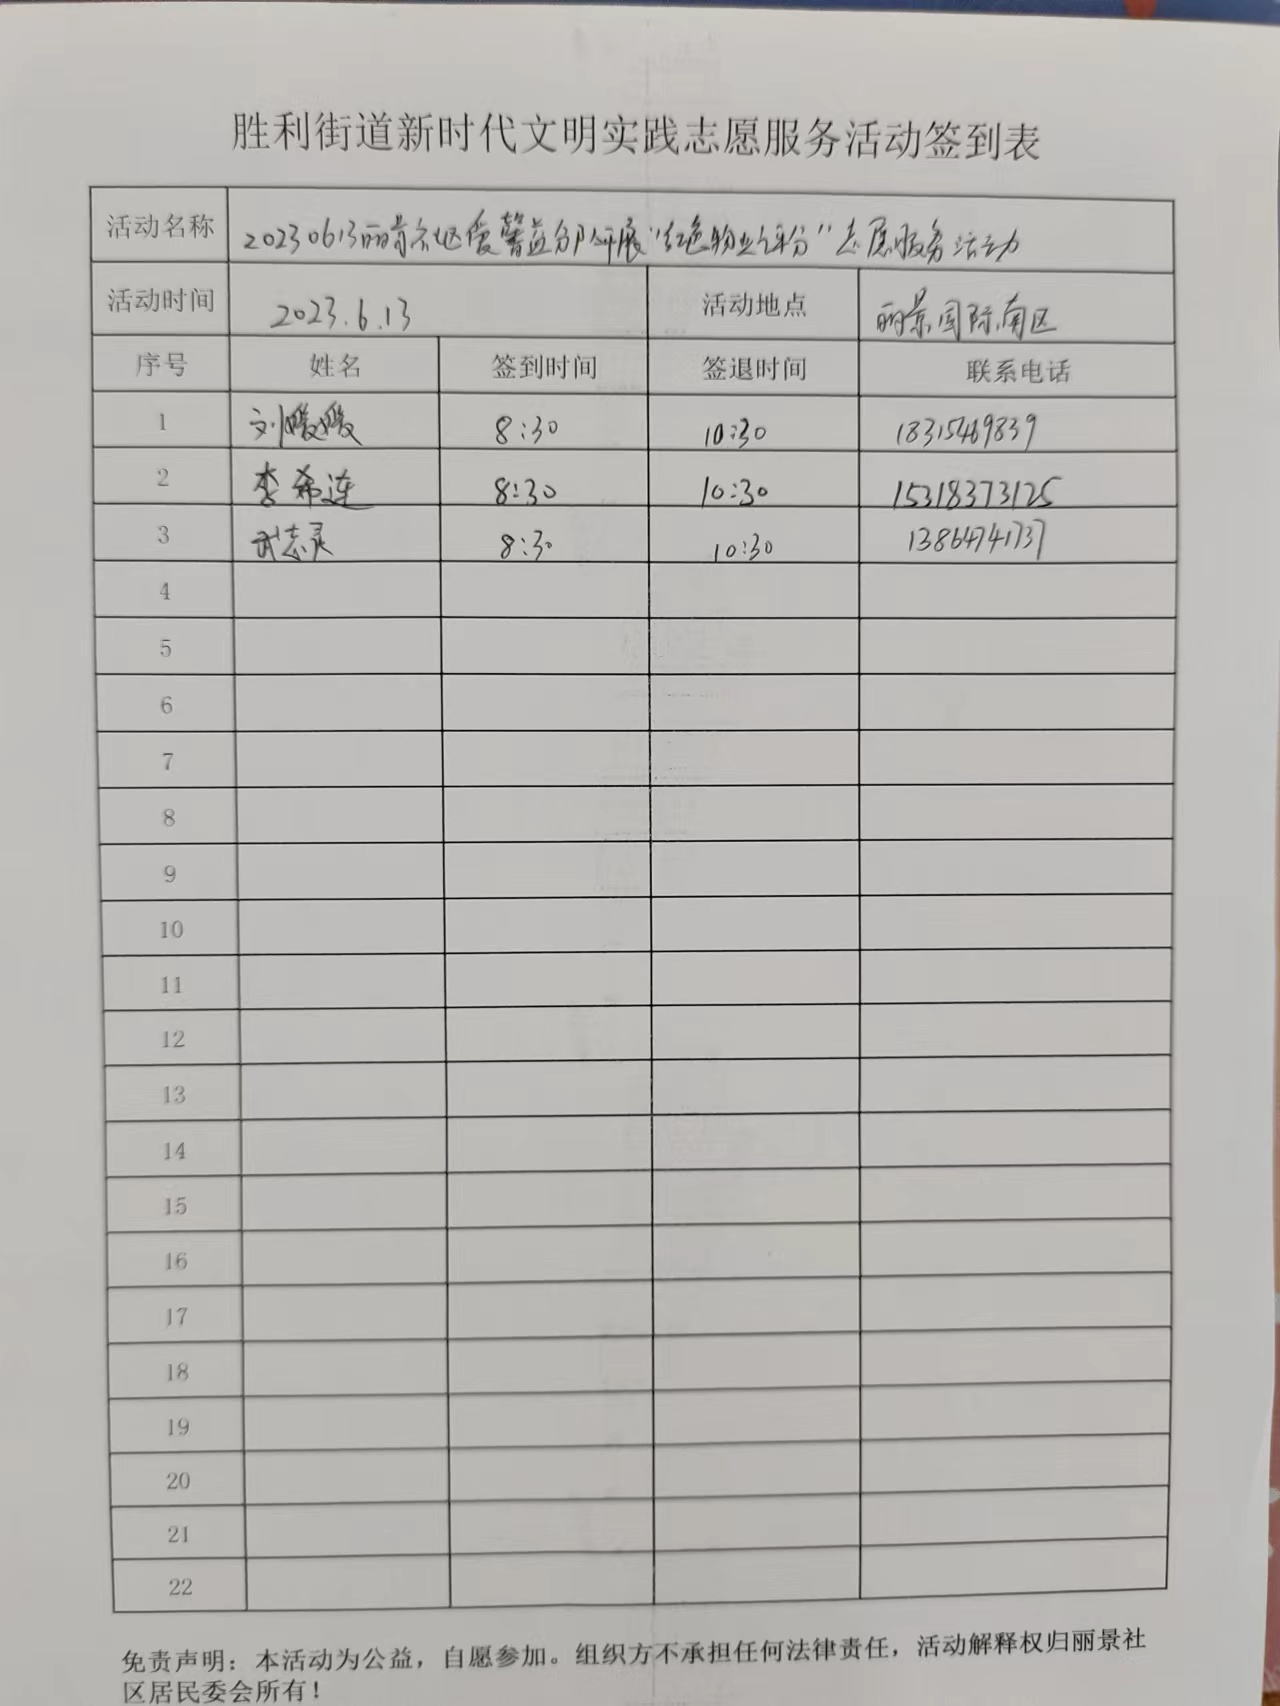 胜利街道新时代文明实践志愿服务活动签到表
活动名称 20230613丽景社区爱馨益分队开展"红色物业年份"志愿服务活动
活动时间 2023.6.13 活动地点 丽景国际南区
序号 姓名 签到时间 签退时间 联系电话
1 刘媛媛 8:30 10:30 18315469839
2 李希连 8:30 10:30 15318373125
3 武志灵 8:30 10:30 13864741737
4
5
6
7
8
9
10
11
12
13
14
15
16
17
18
19
20
21
22
免责声明：本活动为公益，自愿参加。组织方不承担任何法律责任，活动解释权归丽景社
区居民委会所有！